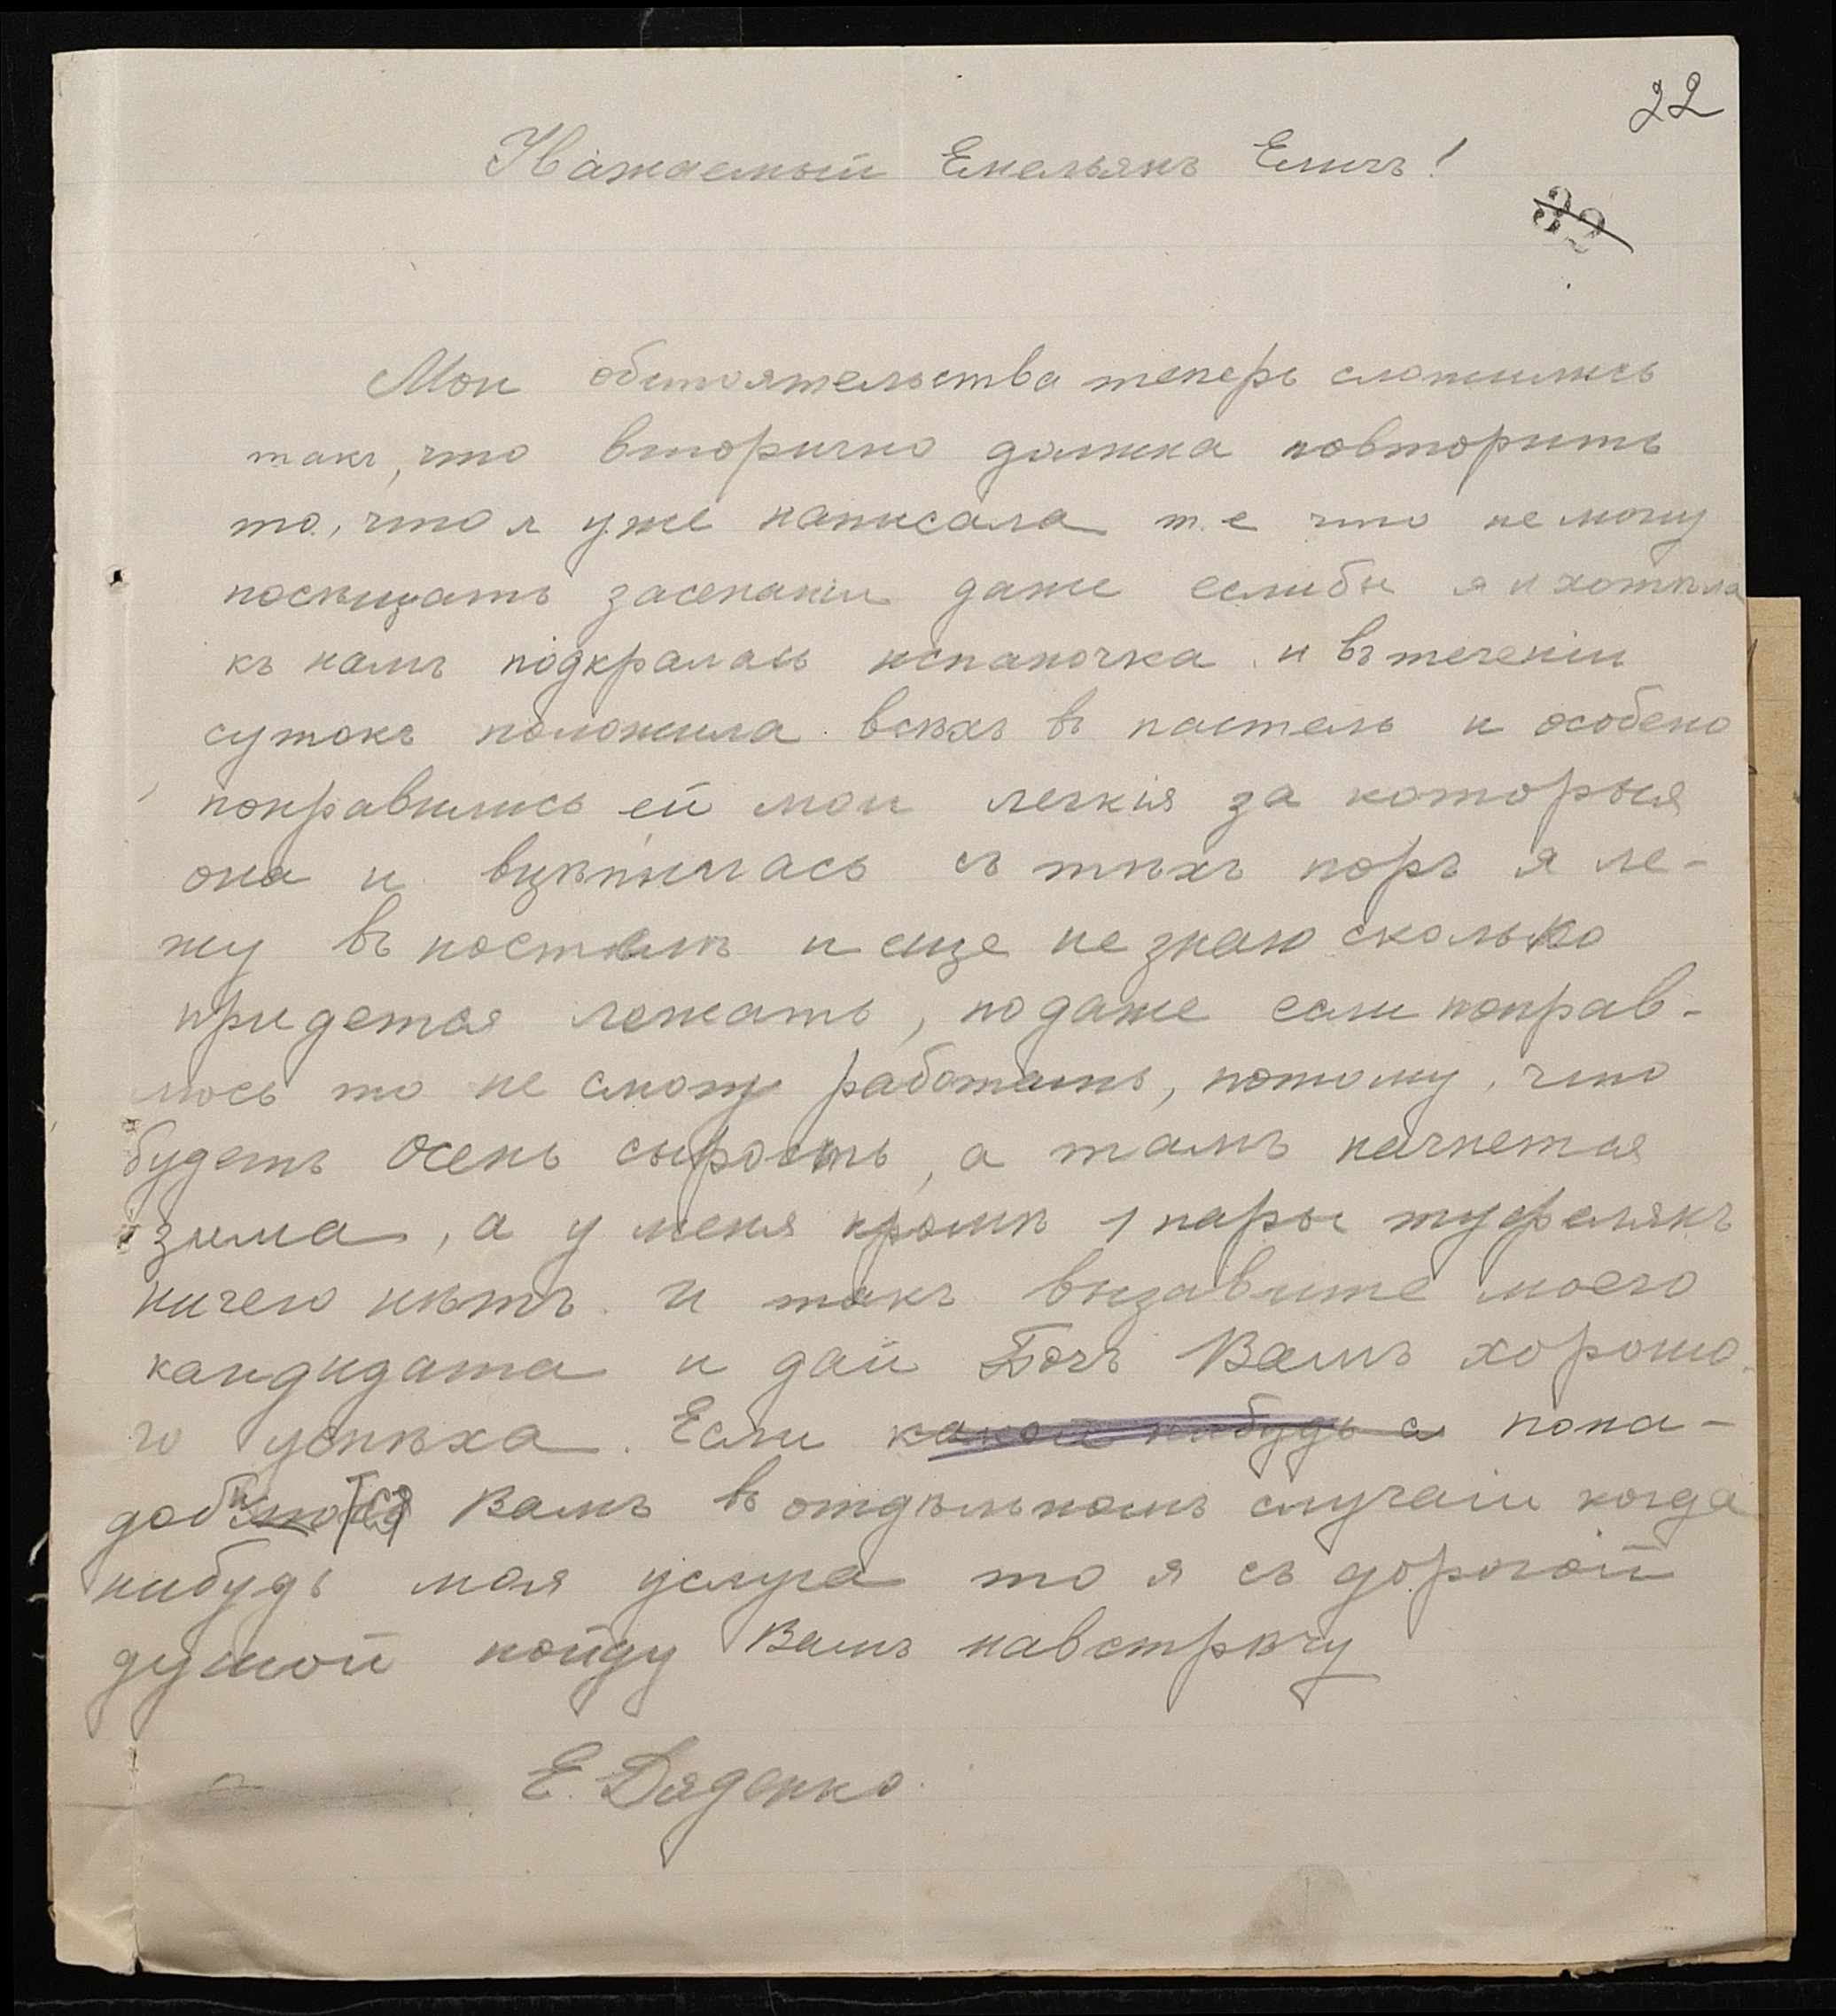 22
Уважаемый Емельянъ Еличъ!
32
Мои обстоятельства теперь сложились
такъ, что вторично должна повторить
то, что я уже написала т. е что не могу
посѣщать засенании даже еслибы я и хотѣла
къ намъ подкралась испаночка и въ теченіи
сутокъ положила всѣхъ въ пастель и особено
понравились ей мои легкія за которыя
она и вцѣпилась съ тѣхъ поръ я ле-
жу въ постелѣ и еще не знаю сколько
придется лежать, но даже если поправ-
люсь то не смогу работать, потому, что
будетъ осень сырость, а тамъ начнется
зима, а у меня кромѣ 1 пары туфелякъ
ничего нѣтъ. И такъ визавите моего
кандидата и дай Богъ Вамъ хорошо-
го успѣха. Если какой нибудь с пона-
добится Вамъ въ отдѣльномъ случаіи когда
нибудь моя услуга то я съ дорогой
душой пойду Вамъ навстрѣчу
Е. Дяденко.